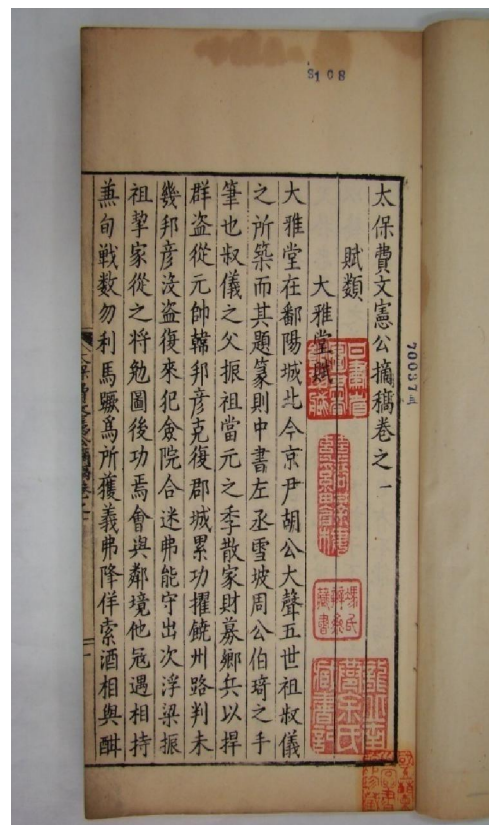 S108
太保費文憲公摘稿卷之一
賦類
大雅堂賦
大雅堂在鄱陽城北今京尹胡公大聲五世祖叔儀
之所築而其題篆則中書左丞雪坡周公伯琦之手
筆也叔儀之父振祖當元之季散家財募鄉兵以捍
群盜從元帥韓邦彥克復郡城累功擢饒州路判未
幾邦彥沒盜復來犯僉院合迷弗能守出次浮梁振
祖挈家從之將勉圖後功焉會與鄰境他冦遇相持
兼旬戰數勿利馬蹶爲所獲義弗降佯索酒相與酣
70037
馮氏辨齋藏書